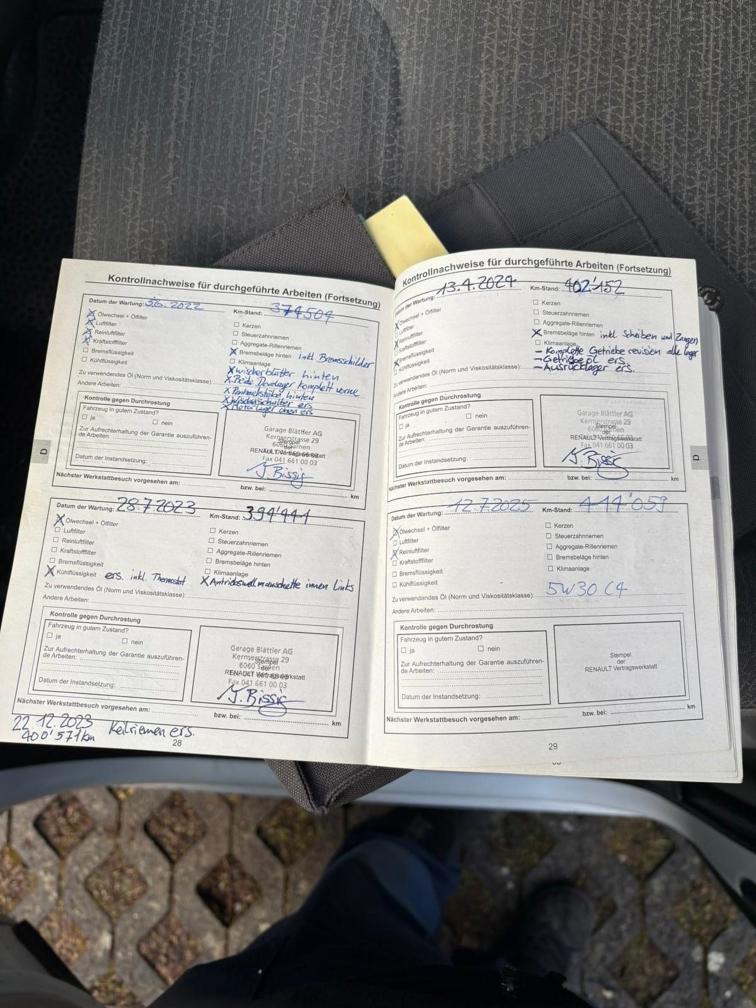 Kontrollnachweise für durchgeführte Arbeiten (Fortsetzung)
Datum der Wartung: 2022 Km-Stand: 374509
X Ölwechsel + Ölfilter
X Luftfilter
X Reinluftfilter
X Kraftstoffilter
Bremsflüssigkeit
Kühlflüssigkeit
Kerzen
Steuerzahnriemen
Aggregate-Rillenriemen
X Bremsbeläge hinten inkl Bremsschilder
Klimaanlage
X Wischerblätter hinten
Zu verwendendes Öl (Norm und Viskositätsklasse):
komplett vorne
Andere Arbeiten:
hinten
ers
X Motorlager oben ers
Kontrolle gegen Durchrostung
Fahrzeug in gutem Zustand?
ja nein
Zur Aufrechterhaltung der Garantie auszuführen-
de Arbeiten:
Datum der Instandsetzung:
Garage Blättler AG
Kernserstrasse 29
RENAULT
Fax 041 661 00 03
Nächster Werkstattbesuch vorgesehen am: bzw. bei: km
D
Datum der Wartung: 28.7.2023 Km-Stand: 394'441
X Ölwechsel + Ölfilter
Luftfilter
Reinluftfilter
Kraftstoffilter
Bremsflüssigkeit
X Kühlflüssigkeit ers. inkl Thermostat
Kerzen
Steuerzahnriemen
Aggregate-Rillenriemen
Bremsbeläge hinten
Klimaanlage
X Antriebswellmanschette innen Links
Zu verwendendes Öl (Norm und Viskositätsklasse):
Andere Arbeiten:
Kontrolle gegen Durchrostung
Fahrzeug in gutem Zustand?
ja nein
Zur Aufrechterhaltung der Garantie auszuführen-
de Arbeiten:
Datum der Instandsetzung:
Garage Blättler AG
Kernserstrasse 29
6060 Sarnen
RENAULT
Fax 041 661 00 03
Nächster Werkstattbesuch vorgesehen am: bzw. bei: km
22.12.2023 Keilriemen ers.
400'571km
28
Kontrollnachweise für durchgeführte Arbeiten (Fortsetzung)
Datum der Wartung: 13.4.2024 Km-Stand: 402'152
Ölwechsel + Ölfilter
Luftfilter
Reinluftfilter
Kraftstoffilter
Bremsflüssigkeit
Kühlflüssigkeit
Kerzen
Steuerzahnriemen
Aggregate-Rillenriemen
X Bremsbeläge hinten inkl Scheiben und Zangen
Klimaanlage
- Komplette Getriebe revision alle lager
- Getriebeöl ers.
- Ausrücklager ers.
Zu verwendendes Öl (Norm und Viskositätsklasse):
Andere Arbeiten:
Kontrolle gegen Durchrostung
Fahrzeug in gutem Zustand?
ja nein
Zur Aufrechterhaltung der Garantie auszuführen-
de Arbeiten:
Datum der Instandsetzung:
Garage Blättler AG
Kernserstrasse 29
Stempel
RENAULT Vertragswerkstatt
Fax 041 661 00 03
Nächster Werkstattbesuch vorgesehen am: bzw. bei: km
D
Datum der Wartung: 12.7.2025 Km-Stand:
X Ölwechsel + Ölfilter
Luftfilter
X Reinluftfilter
Kraftstoffilter
Bremsflüssigkeit
Kühlflüssigkeit
Kerzen
Steuerzahnriemen
Aggregate-Rillenriemen
Bremsbeläge hinten
Klimaanlage
Zu verwendendes Öl (Norm und Viskositätsklasse): 5W30 C4
Andere Arbeiten:
Kontrolle gegen Durchrostung
Fahrzeug in gutem Zustand?
ja nein
Zur Aufrechterhaltung der Garantie auszuführen-
de Arbeiten:
Datum der Instandsetzung:
Stempel
der
RENAULT Vertragswerkstatt
Nächster Werkstattbesuch vorgesehen am: bzw. bei: km
29